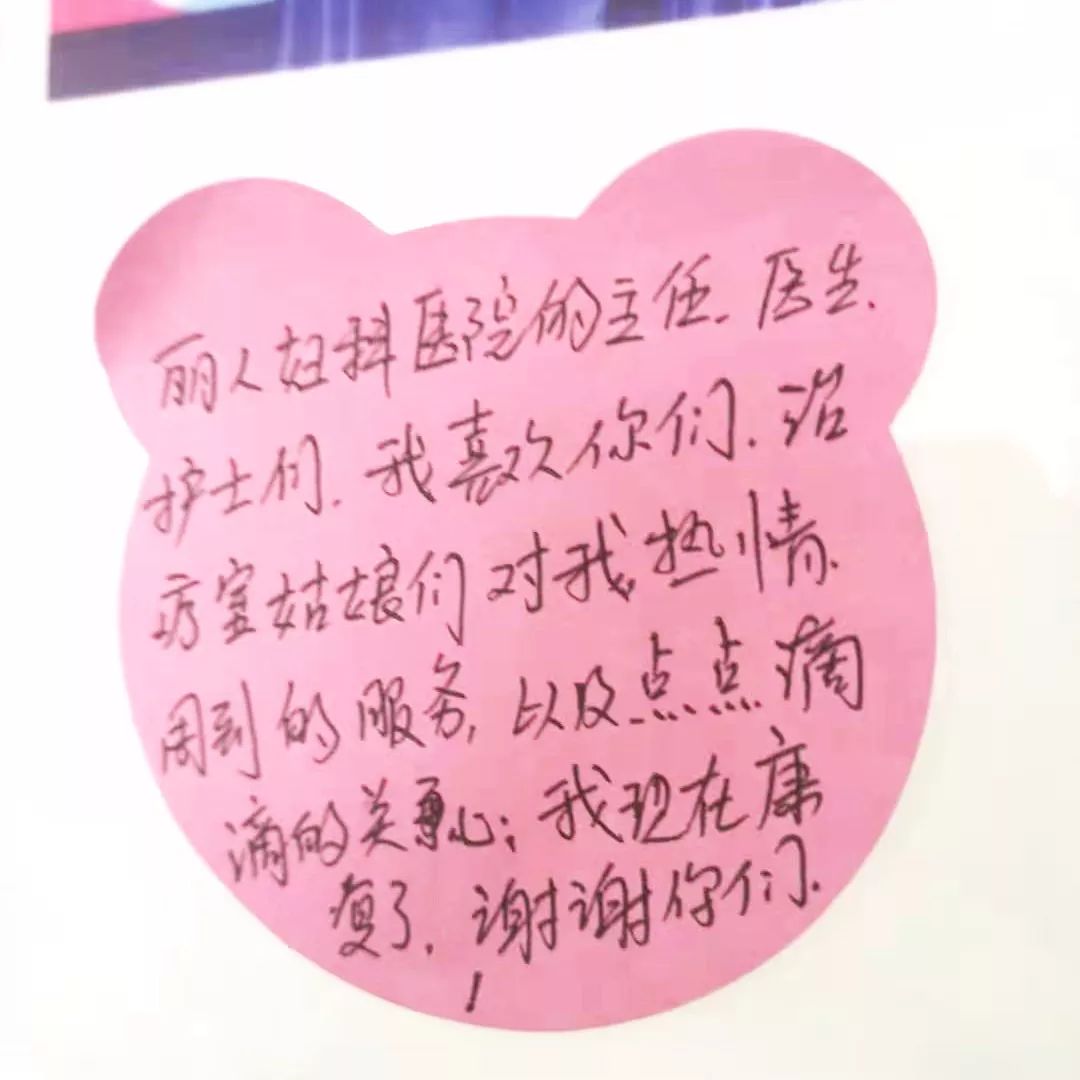 丽人妇科医院的主任.医生.
护士们.我喜欢你们.治
疗室姑娘们对我热情.
周到的服务,以及点点滴
滴的关心;我现在康
复了,谢谢你们.
!